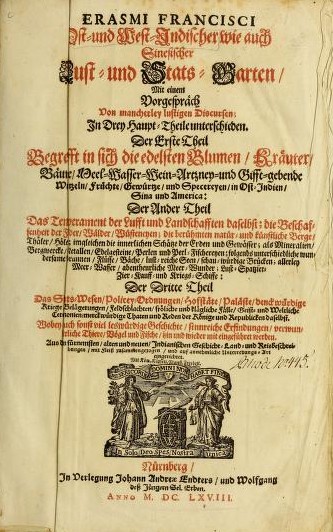 ERASMI FRANCISCI
Ost- und West-Indischer wie auch
Sinesischer
Lust- und Stats-Garten/
Mit einem
Vorgespräch
Von mancherley lustigen Discursen;
In Drey Haupt-Theile unterschieden.
Der Erste Theil
Begrefft in sich die edelsten Blumen/Kräuter/
Bäume/Meel-Wasser-Wein-Artzney-und Gifft-gebende
Wurzeln/Früchte/Gewürtze/und Specereyen/in Ost-Indien/
Sina und America:
Der Ander Theil
Das Temperament der Lufft und Landschafften daselbst; die Beschaf-
fenheit der Felder/Wälder/Wüsteneyen; die berühmten natür- und künstliche Berge/
Thäler/Hölen; imgleichen die innerlichen Schätze der Erden und Gewässer; als Mineralien/
Bergwercke/Metallen/Edelgesteine/Perlen und Perl-Fischereyen; folgends unterschiedliche wun-
dersame Brunnen/Flüsse/Bäche/lust-reiche Seen/schau-würdige Brücken; allerley
Meer-Wasser/abentheurliche Meer-Wunder; Lust-Spatzier-
Zier-Kauff- und Kriegs-Schiffe:
Der Dritte Theil
Das Stats-Wesen/Policey-Ordnungen/Hofstäte/Paläste/denckwürdige
Kriege/Belägerungen/Feldschlachten/fröliche und klägliche Fälle/Geist- und Weltliche
Ceremonien/merckwürdige Thaten und Reden der Könige und Republicken daselbst.
Wobey auch sonst viel leswürdige Geschichte/sinnreiche Erfindungen/verwun-
derliche Thiere/Vögel und Fische/hin und wieder mit eingeführet werden.
Aus den fürnemsten/alten und neuen/Indianischen Geschicht-Land- und Reisbeschrei-
bungen/mit Fleiß zusammengezogen/und auf annehmliche Unterredungs-Art
eingerichtet.
In Solo Deo Spes Nostra Unica.
Nürnberg/
In Verlegung Johann Andreæ Endters/und Wolfgang
deß Jüngern Sel. Erben.
ANNO M. DC. LXVIII.